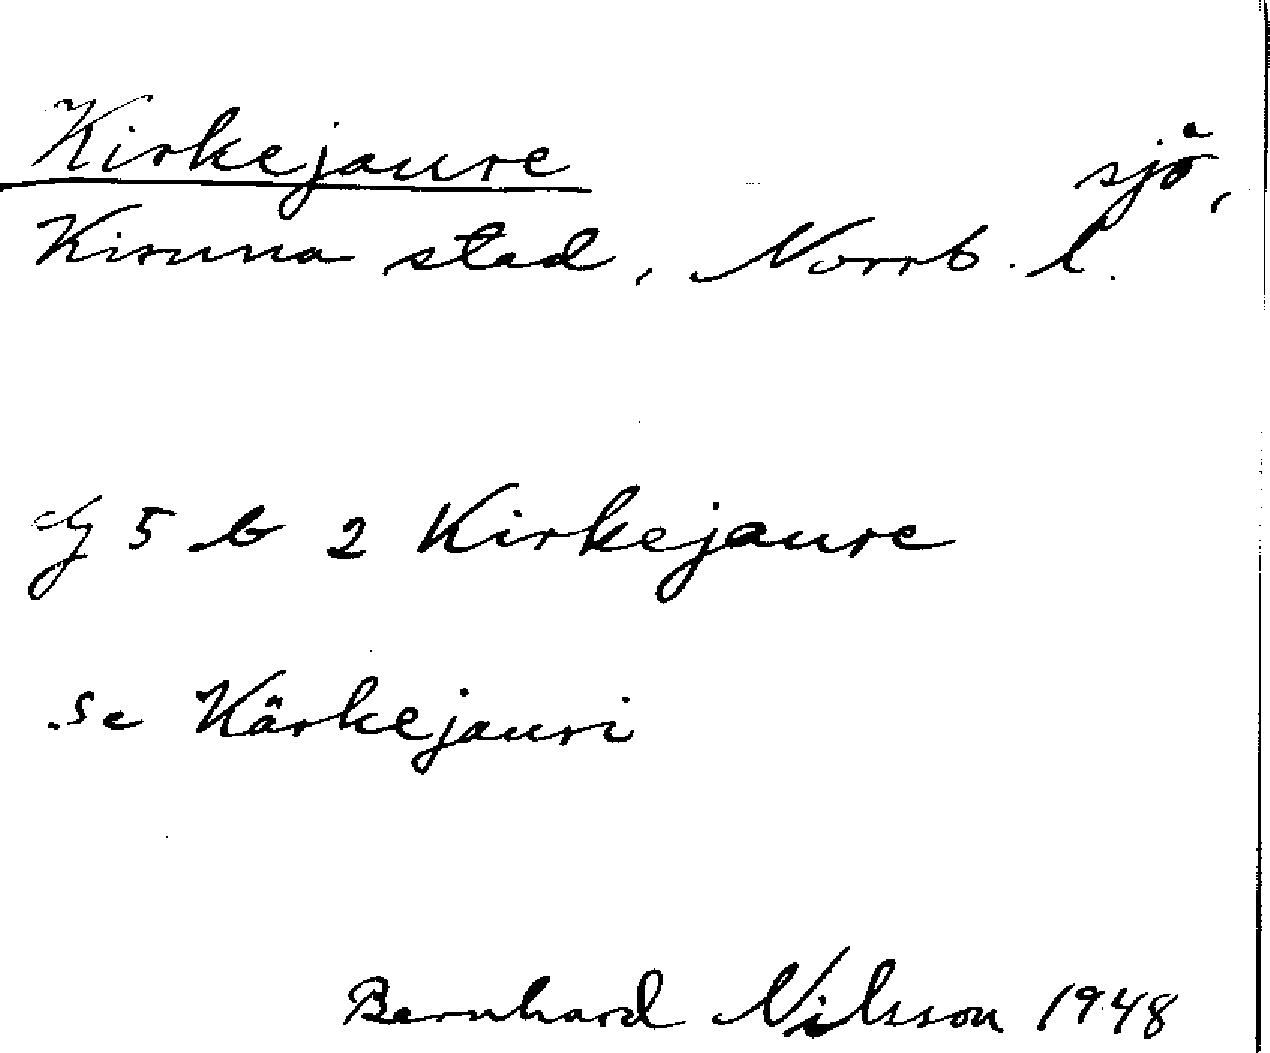 Kirkejaure sjö,
Kiruna stad, Norrb. l.
5 b 2 Kirkejaure
se Kärkejauri
Bernhard Nilsson 1948